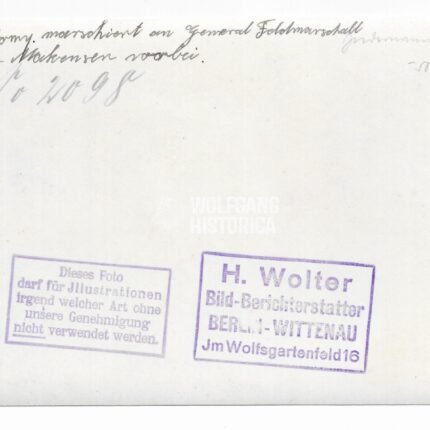 marschiert an General Feldmarschall
Makensen vorbei.
No 2098
WOLFGANG
HISTORICA
Dieses Foto
darf für Jllustrationen
irgend welcher Art ohne
unsere Genehmigung
nicht verwendet werden.
H. Wolter
Bild-Berichterstatter
BERLIN-WITTENAU
Jm Wolfsgartenfeld 16